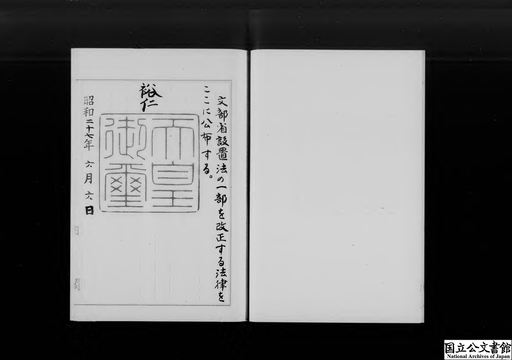 文部省設置法の一部を改正する法律を
ここに公布する。
裕仁
天皇
御璽
昭和二十七年六月六日
国立公文書館
National Archives of Japan